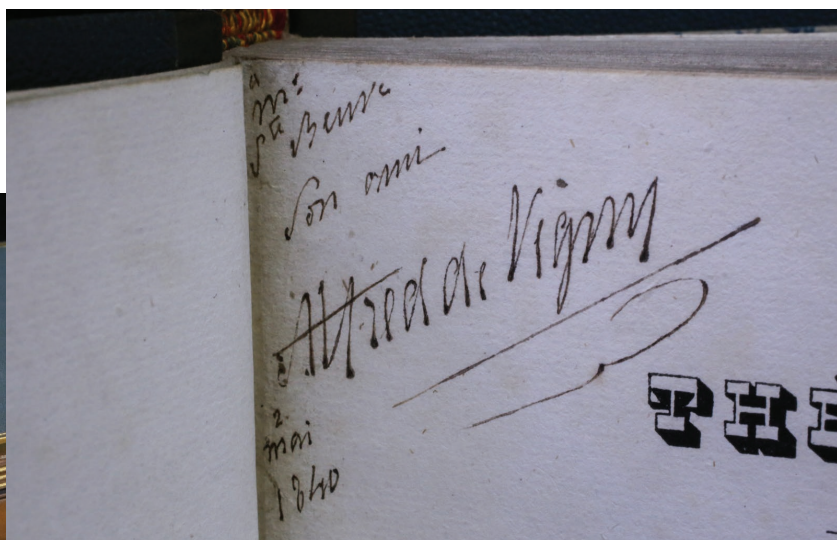 a
Mr
Ste Beuve
Son ami
Alfred de Vigny
2.
mai
1840
THÉ